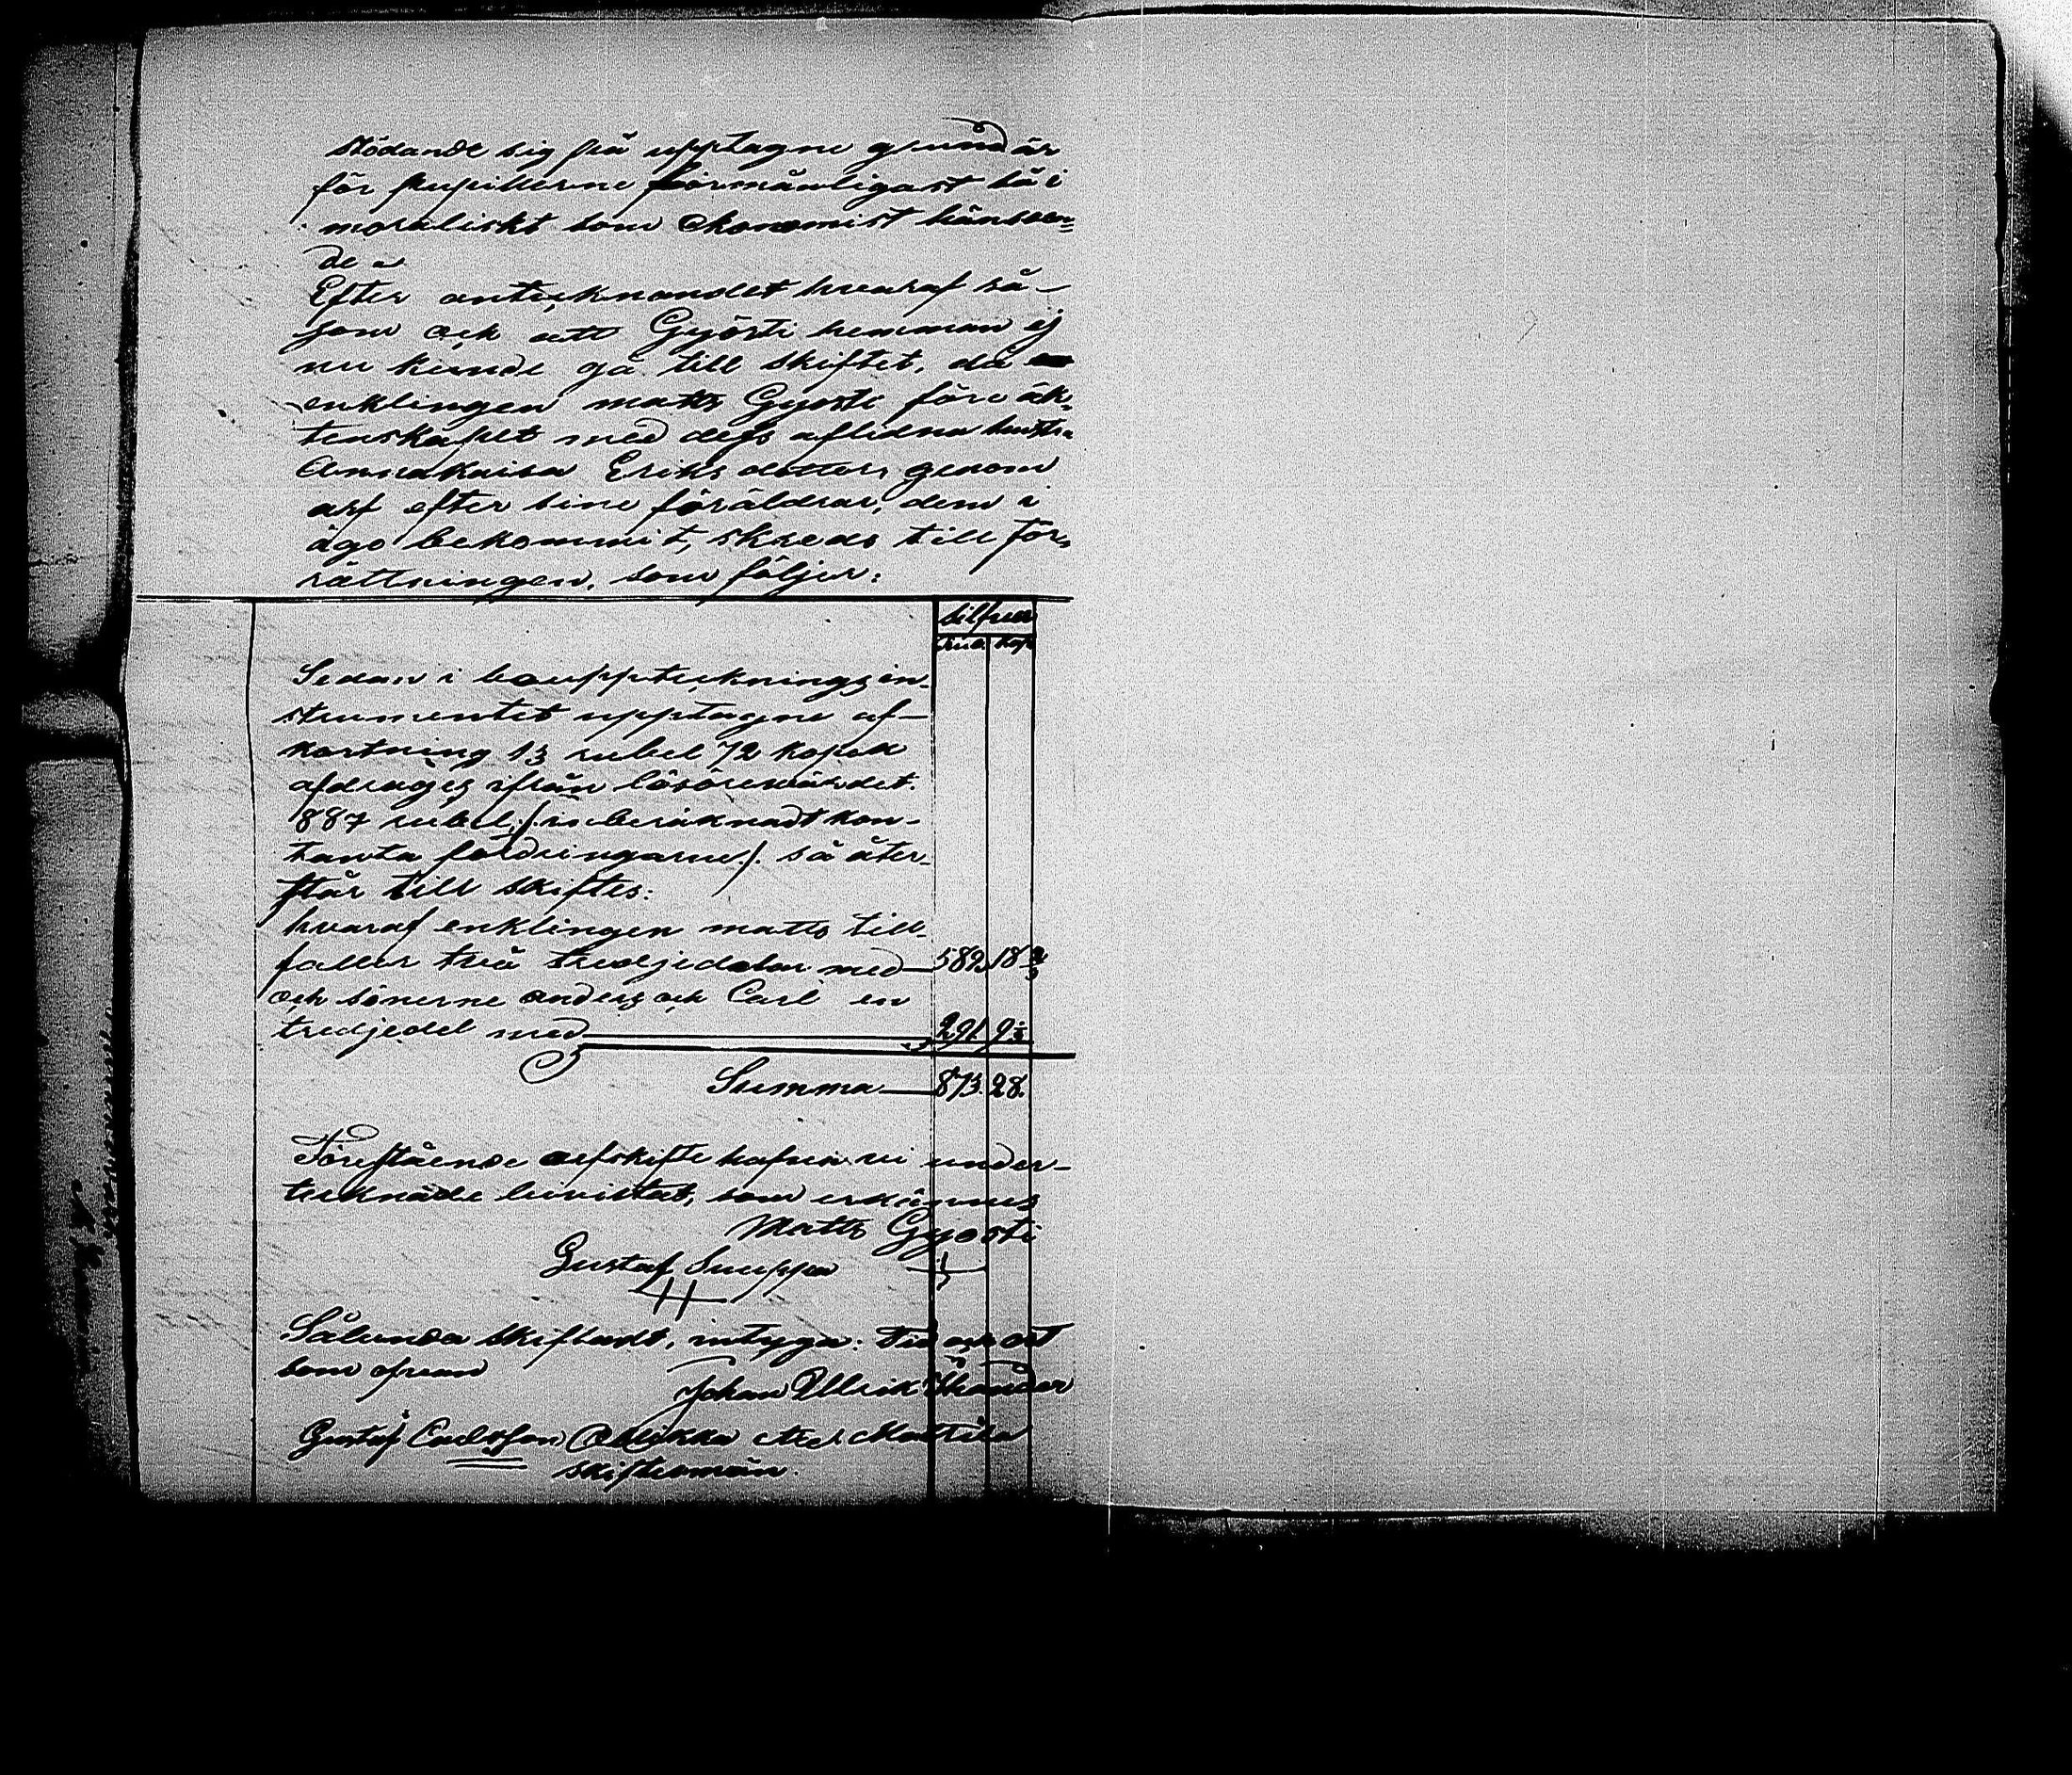 stödande sig på upptagne grund är
för pupillerne förmånligast så i
moraliskt som ekonomist hänseen=
de
Efter antecknandet hvaraf så-
som ock att Gyösti hemman ej
nu kunde gå till skiftet, då
enklingen matts Gyosti före äk-
tenskapet med dess aflidna hustru
Annakaisa Eriks dotter, genom
arf efter sine föräldrar, dem i
ägo bekommit, skreds till för-
rättningen, som följer:
silfver
Rub. kop.
Sedan i bouppteckningsin-
strumentet upptagne af-
kortning 13 rubel 72 kopek
afdrages ifrån lösörevärdet.
887 rubel /: inberäknadt kon-
tanta fordringarne /: så åter-
står till skiftes:
hvaraf enklingen matts till-
faller två tredjedelar med 582. 18 2/3
och sönerne anders och Carl en
tredjedel med 291. 9 1/3
Summa 873. 28.
Förestående arfskifte hafva vi under-
tecknade bevistat, som erkännes
Matts Gyosti
Gustaf
Sålunda skiftadt, intyga: Tid och ort
som ofvan
Johan Ulrik
Gustaf Carlsson Matts Mattila
skiftesmän.